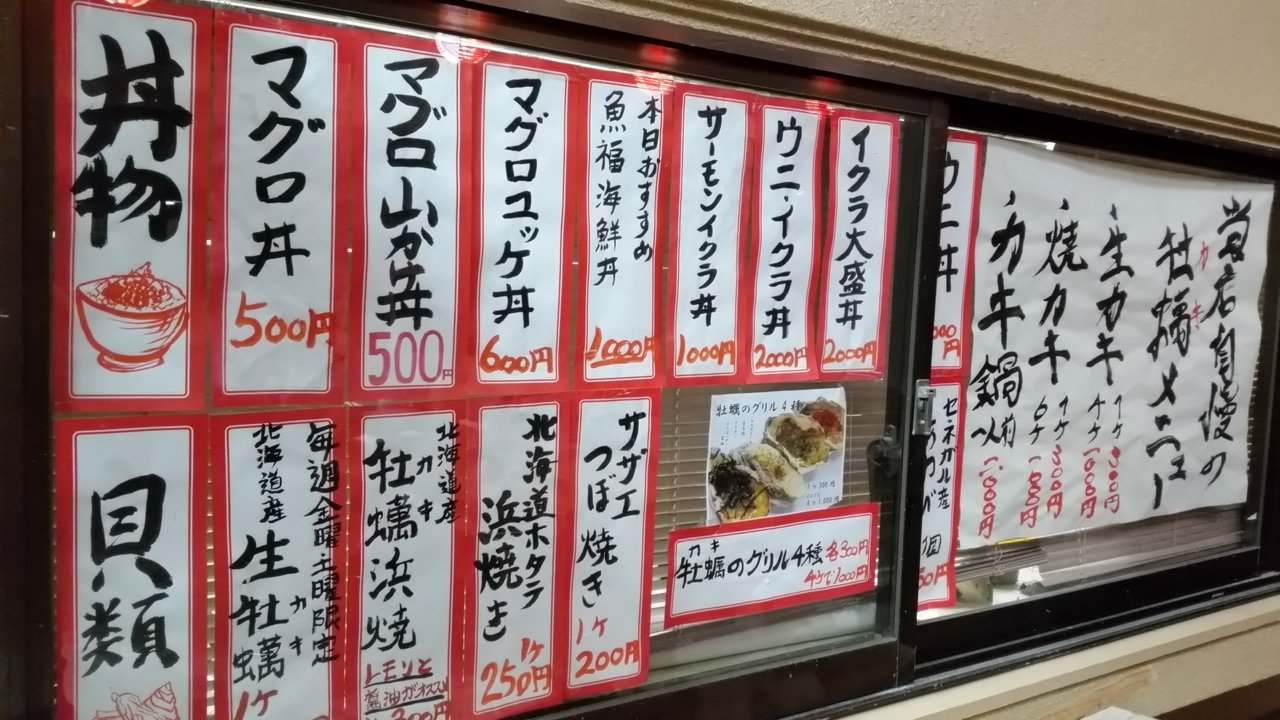 丼物
マグロ丼
500円
マグロ山かけ丼
500円
マグロユッケ丼
600円
本日おすすめ
魚福海鮮丼
1000円
サーモンイクラ丼
1000円
ウニ・イクラ丼
2000円
イクラ大盛丼
2000円
ウニ丼
貝類
毎週金曜土曜限定
北海道産
生牡蠣
カキ
1ケ
北海道産
牡蠣浜焼
カキ
レモンと
醤油がオススメ
300円
北海道ホタテ
浜焼き
1ケ
250円
サザエ
つぼ焼き
1ケ
200円
牡蠣のグリル4種
1ケ300円
4ケ1,000円
カキ
牡蠣のグリル4種
各300円
4ケで1000円
セネガル産
当店自慢の
牡蠣メニュー
カキ
・生カキ
1ケ300円
4ケ1000円
・焼カキ
1ケ300円
6ケ1800円
・カキ鍋
一人前
1000円